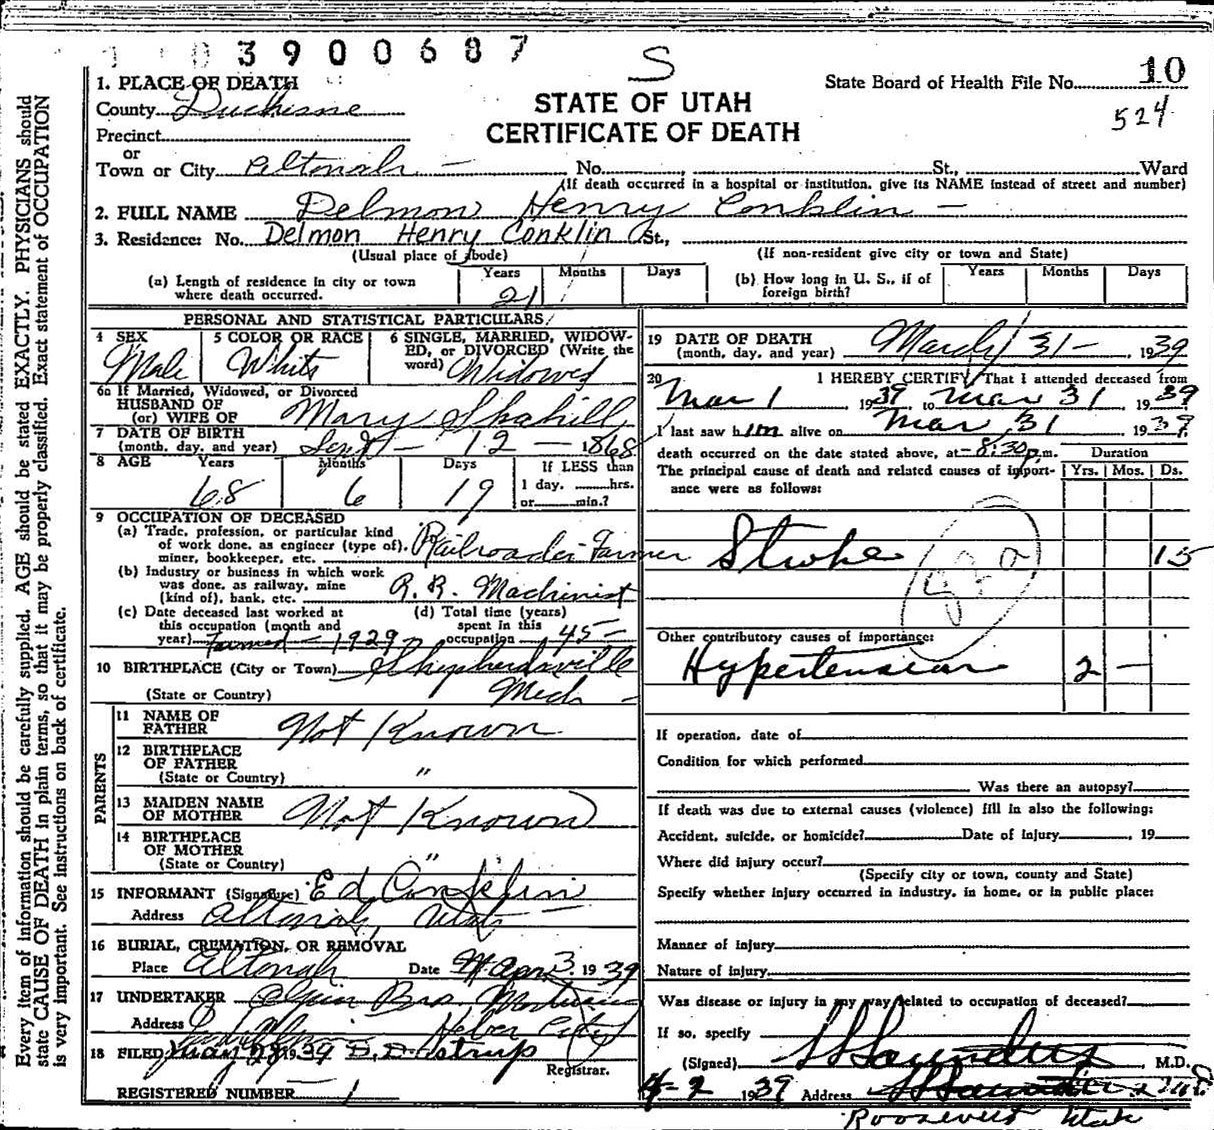 3900687
S
State Board of Health File No. 10
524
STATE OF UTAH
CERTIFICATE OF DEATH
1. PLACE OF DEATH
County Duchesne
Precinct
or
Town or City Altonah - No. St., Ward
(If death occurred in a hospital or institution, give its NAME instead of street and number)
2. FULL NAME Delmon Henry Conklin -
3. Residence: No. Delmon Henry Conklin St.,
(Usual place of abode) (If non-resident give city or town and State)
(a) Length of residence in city or town where death occurred. Years 21 Months Days
(b) How long in U. S., if of foreign birth? Years Months Days
PERSONAL AND STATISTICAL PARTICULARS
4 SEX Male
5 COLOR OR RACE White
6 SINGLE, MARRIED, WIDOWED, or DIVORCED (Write the word) Widowed
6a If Married, Widowed, or Divorced
HUSBAND OF
(or) WIFE OF Mary Shahill
7 DATE OF BIRTH
(month, day, and year) Sept - 12 - 1868
8 AGE Years 68 Months 6 Days 19 If LESS than 1 day, hrs. or min.?
9 OCCUPATION OF DECEASED
(a) Trade, profession, or particular kind of work done, as engineer (type of), miner, bookkeeper, etc. Railroader Farmer
(b) Industry or business in which work was done, as railway, mine (kind of), bank, etc. R. R. Machinist
(c) Date deceased last worked at this occupation (month and year) Farmed - 1929
(d) Total time (years) spent in this occupation 45 -
10 BIRTHPLACE (City or Town) Shepherdsville
(State or Country) Mich -
PARENTS
11 NAME OF FATHER Not Known
12 BIRTHPLACE OF FATHER
(State or Country) "
13 MAIDEN NAME OF MOTHER Not Known
14 BIRTHPLACE OF MOTHER
(State or Country) "
15 INFORMANT (Signature) Ed Conklin
Address Altonah, Utah -
16 BURIAL, CREMATION, OR REMOVAL
Place Altonah Date Apr 3. 1939
17 UNDERTAKER Olpin Bros Mortuary
Address Heber City
18 FILED May 1939 D. D. Ostrup
Registrar.
REGISTERED NUMBER 1
19 DATE OF DEATH
(month, day, and year) March 31 - , 1939
20 I HEREBY CERTIFY, That I attended deceased from
Mar 1 1937 to Mar 31 1939
I last saw him alive on Mar 31 1939
death occurred on the date stated above, at - 8:30 p.m.
The principal cause of death and related causes of importance were as follows:
Duration
Yrs. Mos. Ds.
Stroke 15
Other contributory causes of importance:
Hypertension 2 -
If operation, date of
Condition for which performed
Was there an autopsy?
If death was due to external causes (violence) fill in also the following:
Accident, suicide, or homicide? Date of injury , 19
Where did injury occur?
(Specify city or town, county and State)
Specify whether injury occurred in industry, in home, or in public place:
Manner of injury
Nature of injury
Was disease or injury in any way related to occupation of deceased?
If so, specify
(Signed) Saunders M.D.
4-2 1939 Address
Roosevelt Utah
Every item of information should be carefully supplied. AGE should be stated EXACTLY. PHYSICIANS should
state CAUSE OF DEATH in plain terms, so that it may be properly classified. Exact statement of OCCUPATION
is very important. See instructions on back of certificate.